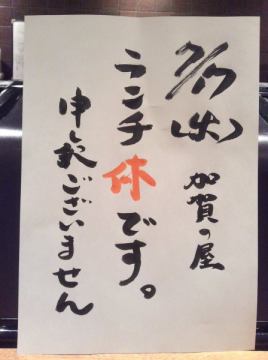 7/17(火)
加賀の屋
ランチ休です。
申し訳ございません